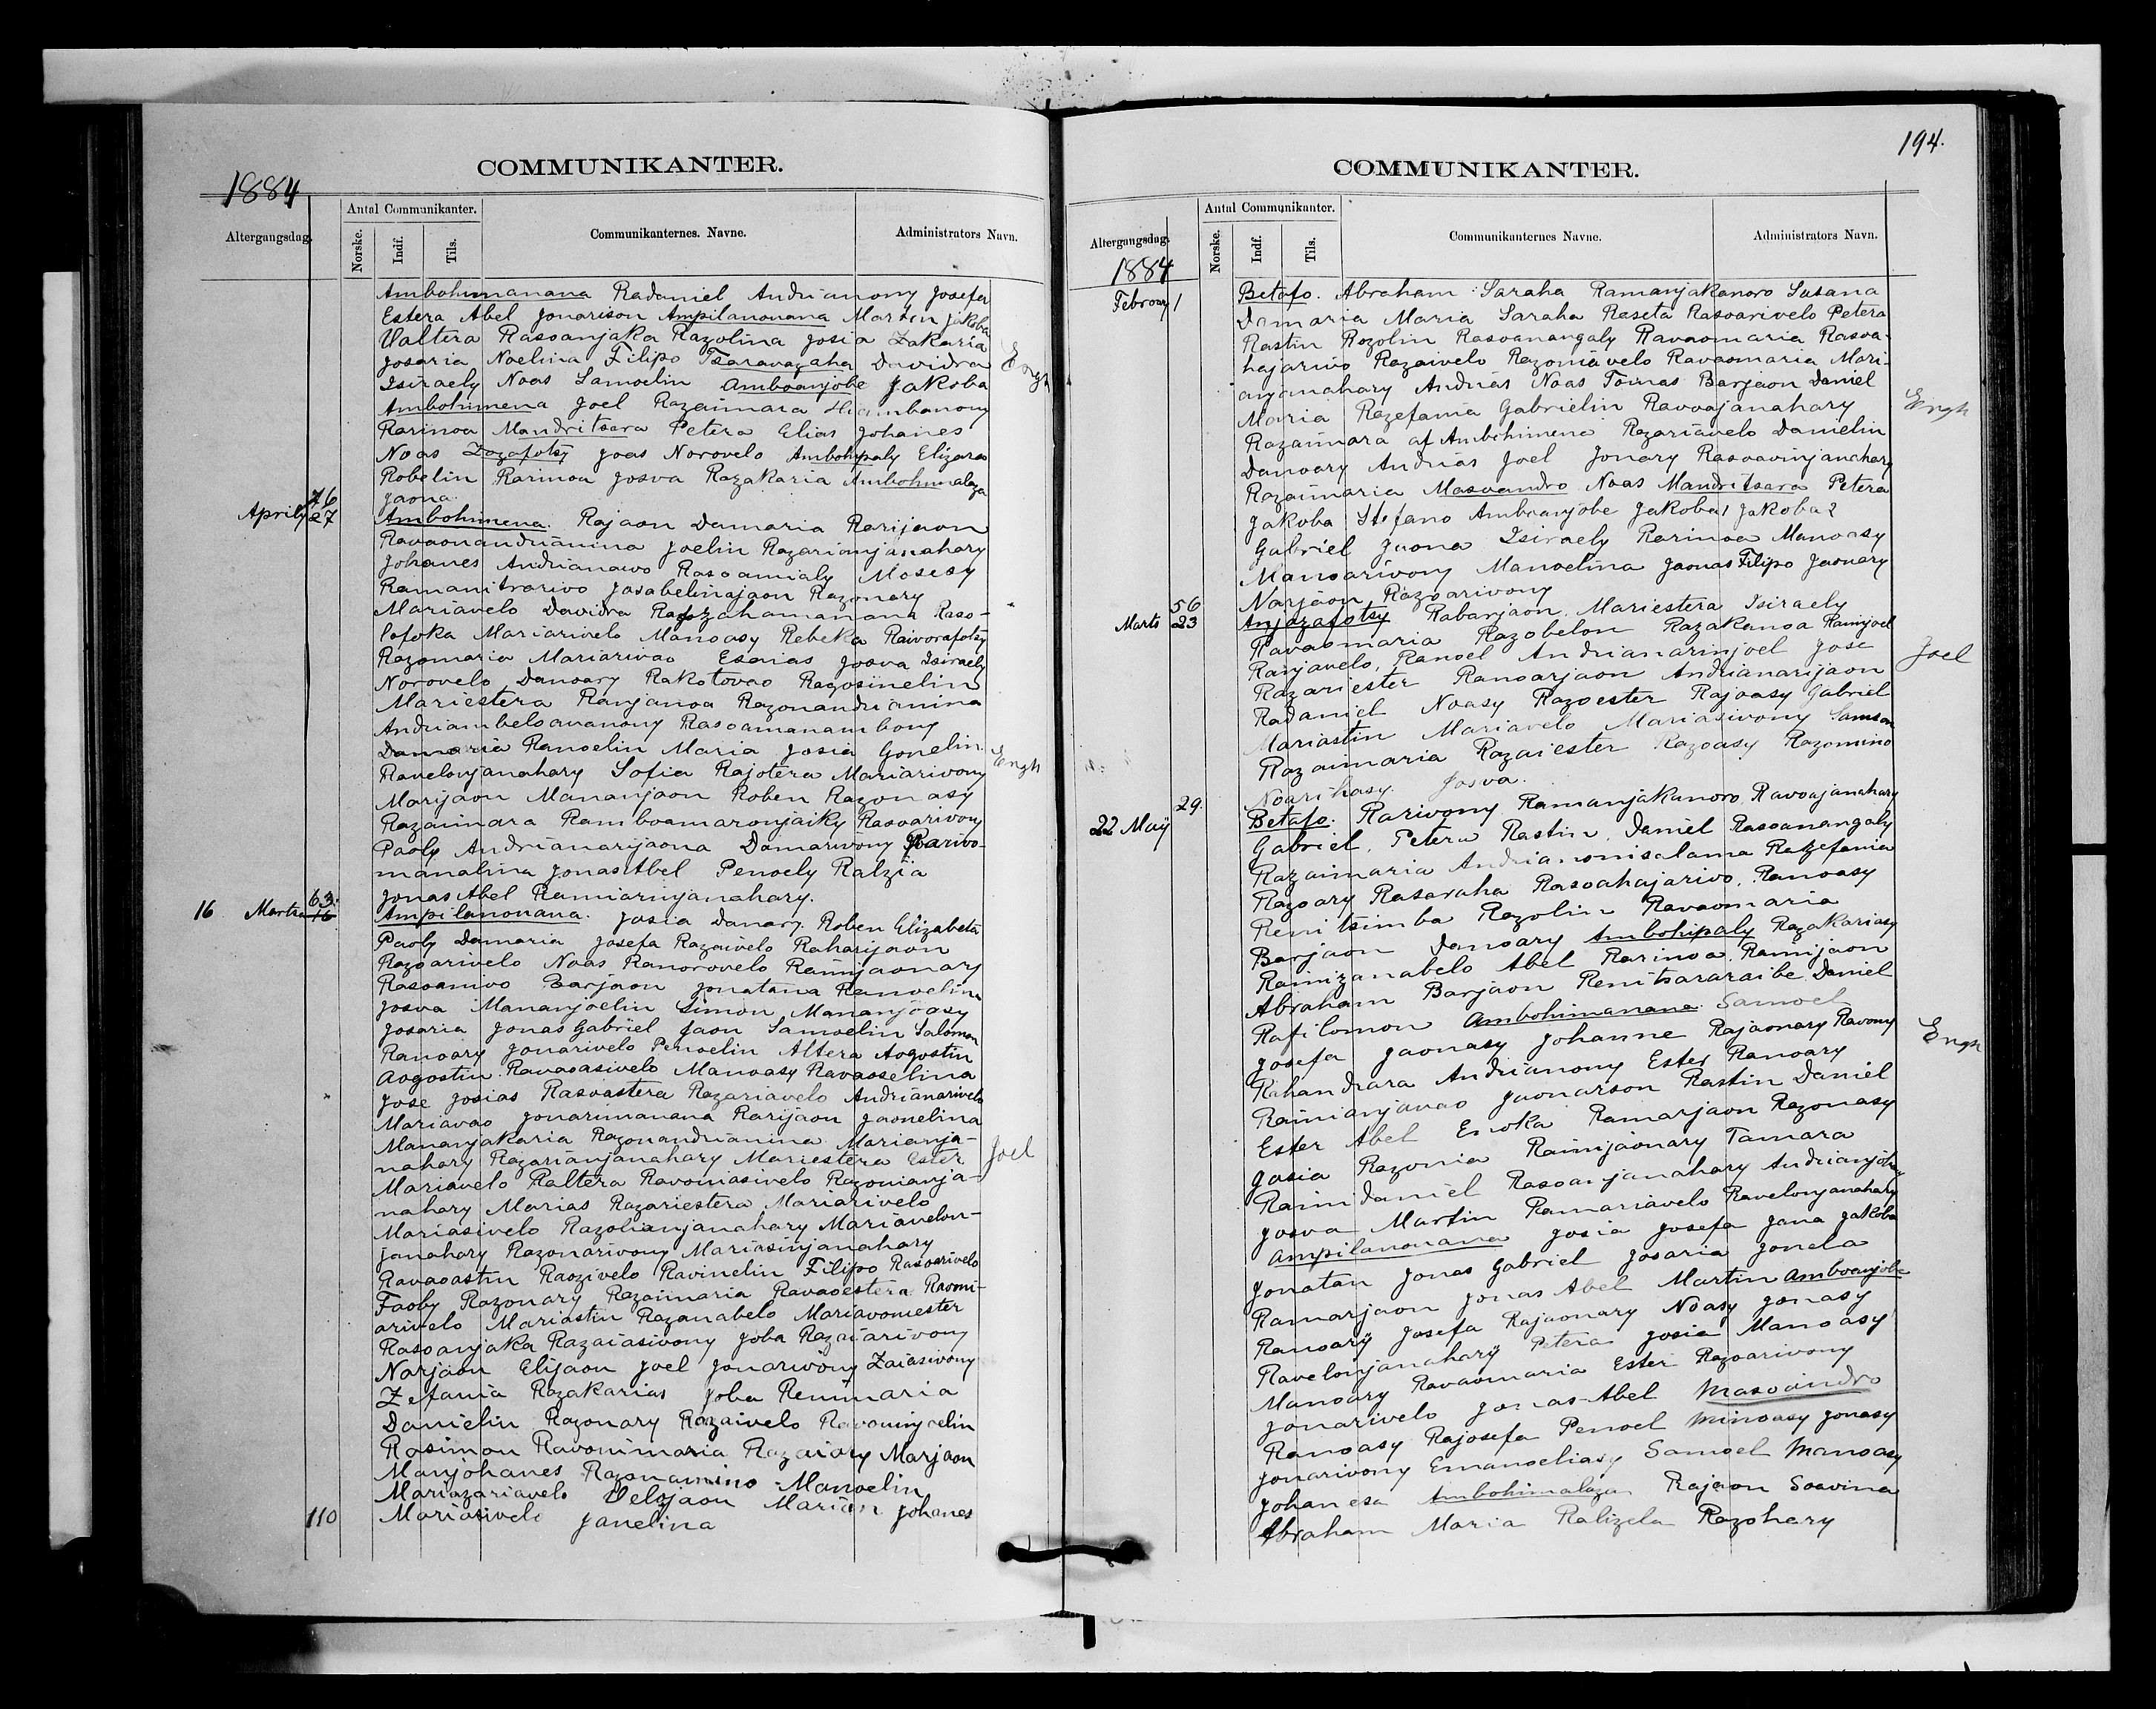 COMMUNIKANTER.
1884
Altergangsdag.
Antal Communikanter.
Norske.
Indf.
Tils.
Communikanternes. Navne.
Administrators Navn.
Ambohimanana Radaniel Andrianony Josefa
Estera Abel Jonarison Ampilanonana Marten Jakoba
Valtera Rasoanjaka Razolina Josia Zakaria
Josaria Noelina Filipo Tsaravazaha Davidra
Engh
Isiraely Noas Samoelin Amboanjobe Jakoba
Ambohimena Joel Razaimara
Rarinoa Mandritsara Petera Elias Johanes
Noas Zozafotsy Joas Norovelo Ambohipaly Elizara
Robelin Rarinoa Josva Razakaria Ambohimalaza
Jaona
76
Aprily 27 Ambohimena. Rajaon Damaria Rarijaon
Ravaonandrianina Joelin Razarianjanahary
Johanes Andrianaivo Rasoamialy Mosesy
Ramanitrarivo Josabelinajaon Razonary
Mariavelo Davidra Razahamanana Raso-
lofoka Mariarivelo Manoasy Rebeka Raivorafotsy
Razomaria Mariarivao Esaias Josva Isiraely
Norovelo Danoary Rakotovao Razosinelin
Mariestera Ranjanoa Razonandrianina
Andriambeloavanony Rasoamanambony
Damaria Ranoelin Maria Josia Gonelin
Engh
Ravelonjanahary Sofia Rajotera Mariarivony
Marijaon Mananjaon Roben Razonasy
Razaimara Ramboamaronjaiky Rasoarivony
Paoly Andrianarijaona Damarivony Rarivo-
manalina Jonas Abel Penoely Ralzia
Jonas Abel Ramiarinjanahary.
63.
16 Martsa 16 Ampilanonana. Josia Danary. Roben Elizabeta
Paoly Damaria Josefa Razaivelo Raharijaon
Razoarivelo Noas Ranorovelo Rainijaonary
Rasoamivo Barjaon Jonatana Ranoelina
Josva Mananjoelin Simon Mananjoasy
Josaria Jonas Gabriel Jaon Samoelin Salomon
Ranoary Jonarivelo Penoelin Altera Aogostin
Aogostin Ravaoasivelo Manoasy Ravaoselina
Jose Josias Rasoastera Razariavelo Andrianarivelo
Mariavao Jonarimanana Rarijaon Jaonelina
Mananjakaria Razonandrianina Marianja-
nahary Razarianjanahary Mariestera Ester
Joel
Mariavelo Raltera Ravomasivelo Razonianja-
nahary Marias Razariestera Mariarivelo
Mariasivelo Razolianjanahary Mariavelon-
janahary Razonarivony Mariasinjanahary
Ravaoastin Raozivelo Ravinelin Filipo Rasoarivelo
Faoby Razonary Razaimaria Ravaoestera Raomi-
arivelo Mariastin Razanabelo Mariavomester
Rasoanjaka Razaiasivony Joba Razaiarivony
Narjaon Elijaon Joel Jonarivony Zaiasivony
Zefania Razakarias Joba Renimaria
Danielin Razonary Razaivelo Ravaominjoelin
Rasimon Ravonimaria Razaiary Marjaon
Manjohanes Razonamino Manoelin
Mariazariavelo Velojaon Marian Johanes
110 Mariasivelo Janelina
194.
COMMUNIKANTER.
Altergangsdag.
1884
Antal Communikanter.
Norske.
Indf.
Tils.
Communikanternes Navne.
Administrators Navn.
Februar 1 Betafo. Abraham Saraha Ramanjakanoro Susana
Damaria Maria Saraha Raseta Rasoarivelo Petera
Rastin Rozolin Rasoanangaly Ravaomaria Rasoa-
hajarivo Razaivelo Razoniavelo Ravaomaria Mari-
anjanahary Andrias Noas Tomas Barjaon Daniel
Maria Razefania Gabrielin Ravoajanahary
Engh
Razaimara af Ambohimena Razariavelo Danielin
Danoary Andrias Joel Jonary Rasoavinjanahary
Razaimaria Masoandro Noas Mandritsara Petera
Jakoba Stefano Amboanjobe Jakoba 1 Jakoba 2
Gabriel Jaona Isiraely Rarinoa Manoasy
Manoarivony Manoelina Jaonas Filipo Jaonary
Narjaon Razoarivony
56
Marts 23 Anjazafotsy Rabarjaon Mariestera Isiraely
Ravaomaria Razobelon Razakanoa Rainijoel
Ranjavelo, Ranoel Andrianarinjoel Jose
Joel
Razariester Ranoarjaon Andrianarijaon
Radaniel Noasy Razoester Rajoasy Gabriel
Mariastin Mariavelo Mariasivony Samson
Razaimaria Razaiester Razoasy Razomino
Noarihasy. Josva.
29.
22 Maij Betafo. Rarivony Ramanjakanoro, Ravoajanahary
Gabriel, Petera Rastin, Daniel Rasoanangaly
Razaimaria Andrianonisalama Razefania
Razoary Rasaraha Rasoahajarivo, Ranoasy
Renitsimba Razolin Ravaomaria
Barjaon Danoary Ambohipaly Razakariasy
Rainizanabelo Abel Rarinoa. Rainijaon
Abraham Barjaon Renitsararaibe Daniel
Rafilomon Ambohimanana Samoel
Josefa Jaonasy Johanne Rajaonary Ravony
Engh
Rahandrara Andrianony Ester Ranoary
Rainianjavao Jaonarson Rastin Daniel
Ester Abel Enoka Ramarjaon Razonasy
Josia Razonia Rainijaonary Tamara
Rainidaniel Rasoanjanahary
Josva Martin Ramariavelo Ravelonjanahary
Ampilanonana Josia Josefa Jana Jakoba
Jonatan Jonas Gabriel Josaria Jonela
Ramarjaon Jonas Abel Martin Amboanjobe
Ranoary Josefa Rajaonary Noasy Jonasy
Ravelonjanahary Petera Josia Manoasy
Manoary Ravaomaria Ester Razoarivony
Jonarivelo Jonas Abel Masoandro
Ranoasy Rajosefa Penoel Minoasy Jonasy
Jonarivony Emanoeliasy Samoel Manoasy
Johanesa Ambohimalaza Rajaon Soavina
Abraham Maria Ralizela Razohery